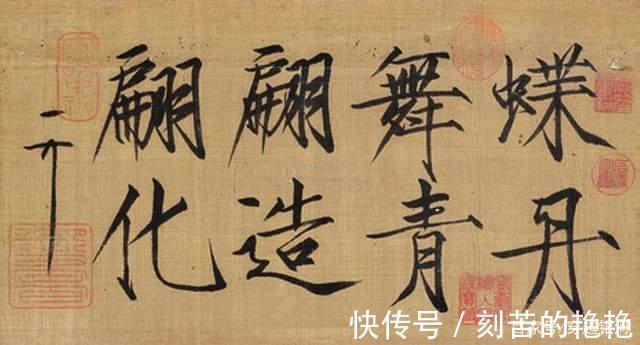 蝶舞翩翩
丹青造化
快传号 / 刻苦的艳艳